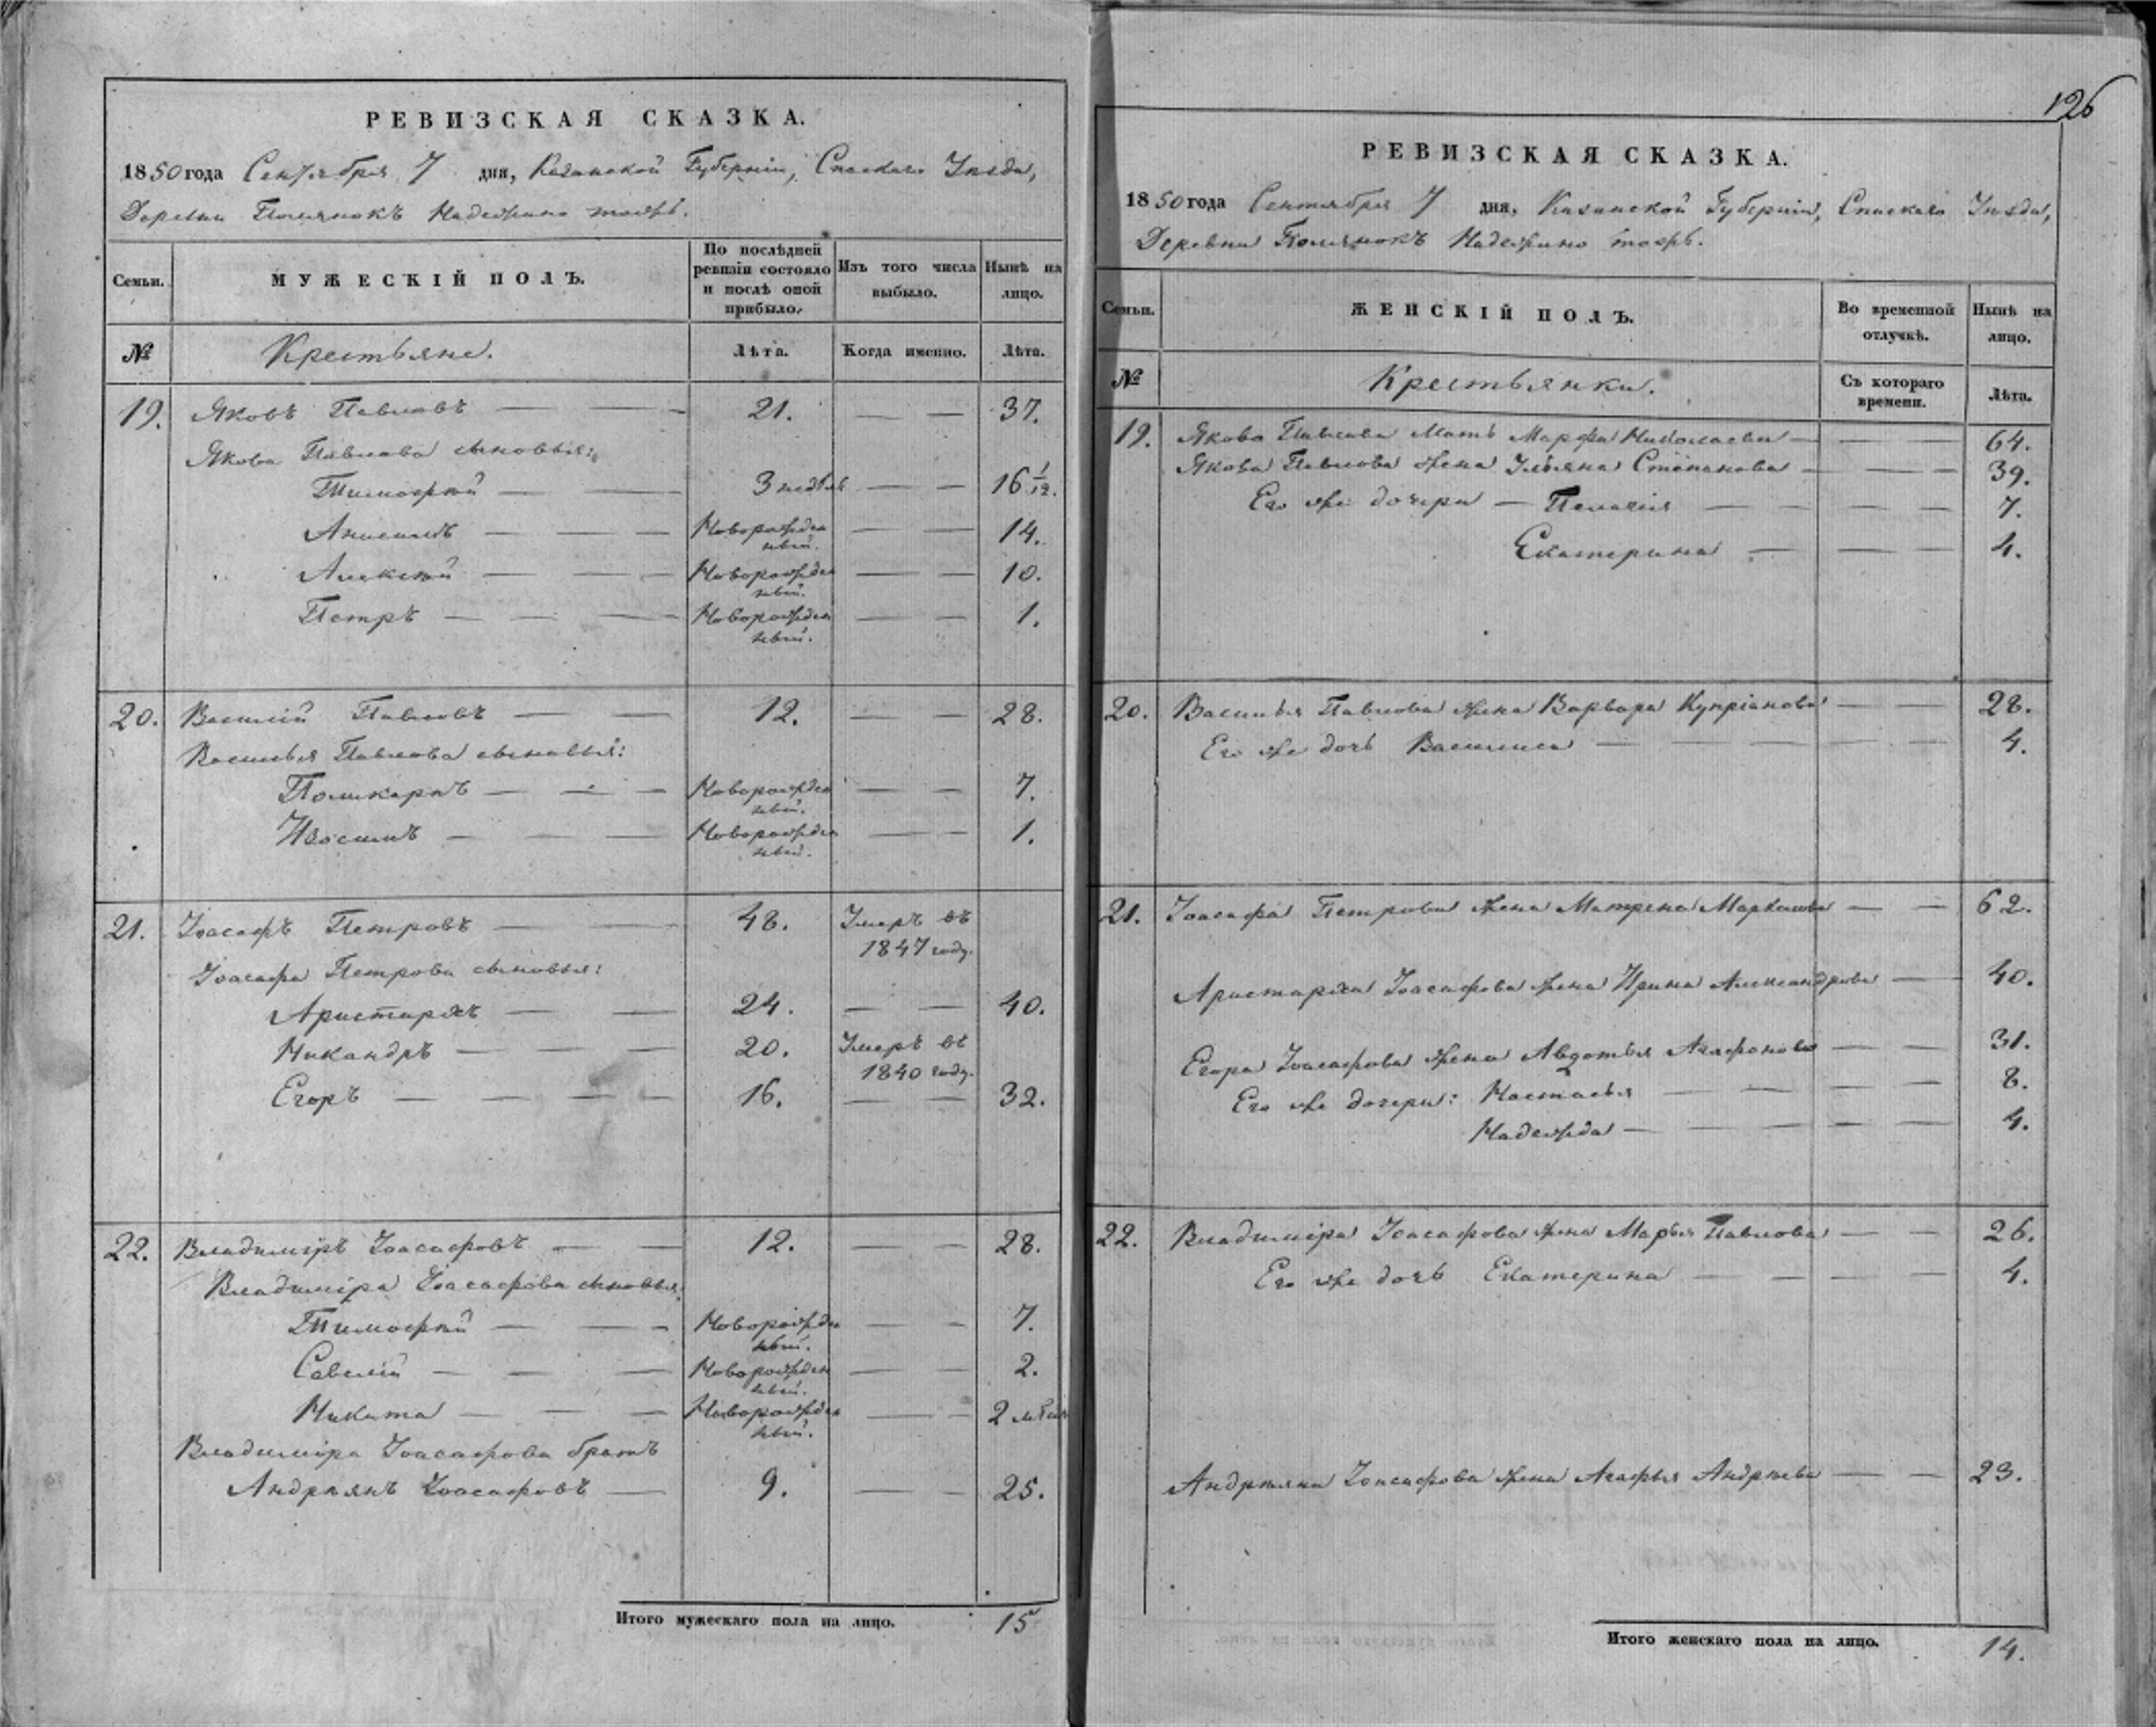 РЕВИЗСКАЯ СКАЗКА.
1850 года Сентября 7 дня, Казанской Губерніи, Спаскаго Уѣзда,
Деревни Полянокъ Надежино тожъ.
Семьи. МУЖЕСКІЙ ПОЛЪ. По послѣдней ревизіи состояло и послѣ оной прибыло. Изъ того числа выбыло. Нынѣ на лицо.
№ Крестьяне. Лѣта. Когда именно. Лѣта.
19. Яковъ Павловъ — — 21. — — 37.
Якова Павлова сыновья:
Тимофей — — 3 недѣль — — 16 1/12.
Анисимъ — — Новорожден ный. — — 14.
Алексей — — Новорожден ный. — — 10.
Петръ — — — Новорожден ный. — — 1.
20. Василій Павловъ — — 12. — — 28.
Василья Павлова сыновья:
Поликарпъ — — — Новорожден ный. — — 7.
Изосимъ — — — Новорожден ный. — — 1.
21. Іоасафъ Петровъ — — 48. Умеръ въ 1847 году.
Іоасафа Петрова сыновья:
Аристархъ — — 24. — — 40.
Никандръ — — — 20. Умеръ въ 1840 году.
Егоръ — — — — 16. — — 32.
22. Владиміръ Іоасафовъ — — 12. — — 28.
Владиміра Іоасафова сыновья:
Тимофей — — — Новорожден ный. — — 7.
Савелій — — — Новорожден ный. — — 2.
Никита — — — Новорожден ный. — — 2 мѣсяц
Владиміра Іоасафова братъ
Андреянъ Іоасафовъ — 9. — — 25.
Итого мужескаго пола на лицо. 15
126
РЕВИЗСКАЯ СКАЗКА.
1850 года Сентября 7 дня, Казанской Губерніи, Спаскаго Уѣзда,
Деревни Полянокъ Надежино тожъ.
Семьи. ЖЕНСКІЙ ПОЛЪ. Во временной отлучкѣ. Нынѣ на лицо.
№ Крестьянки. Съ котораго времени. Лѣта.
19. Якова Павлова Мать Марфа Николаева — — — 64.
Якова Павлова жена Ульяна Степанова — — — 39.
Его же дочери — Пелагія — — — — 7.
Екатерина — — — 4.
20. Василья Павлова жена Варвара Купріянова — — 28.
Его же дочь Василиса — — — — — 4.
21. Іоасафа Петрова жена Матрена Маркелова — — 62.
Аристарха Іоасафова жена Ирина Александрова — 40.
Егора Іоасафова жена Авдотья Агафонова — — 31.
Его же дочери: Настасья — — — — 8.
Надежда — — — — — 4.
22. Владиміра Іоасафова жена Марья Павлова — — 26.
Его же дочь Екатерина — — — — 4.
Андреяна Іоасафова жена Агафья Андреева — — 23.
Итого женскаго пола на лицо. 14.